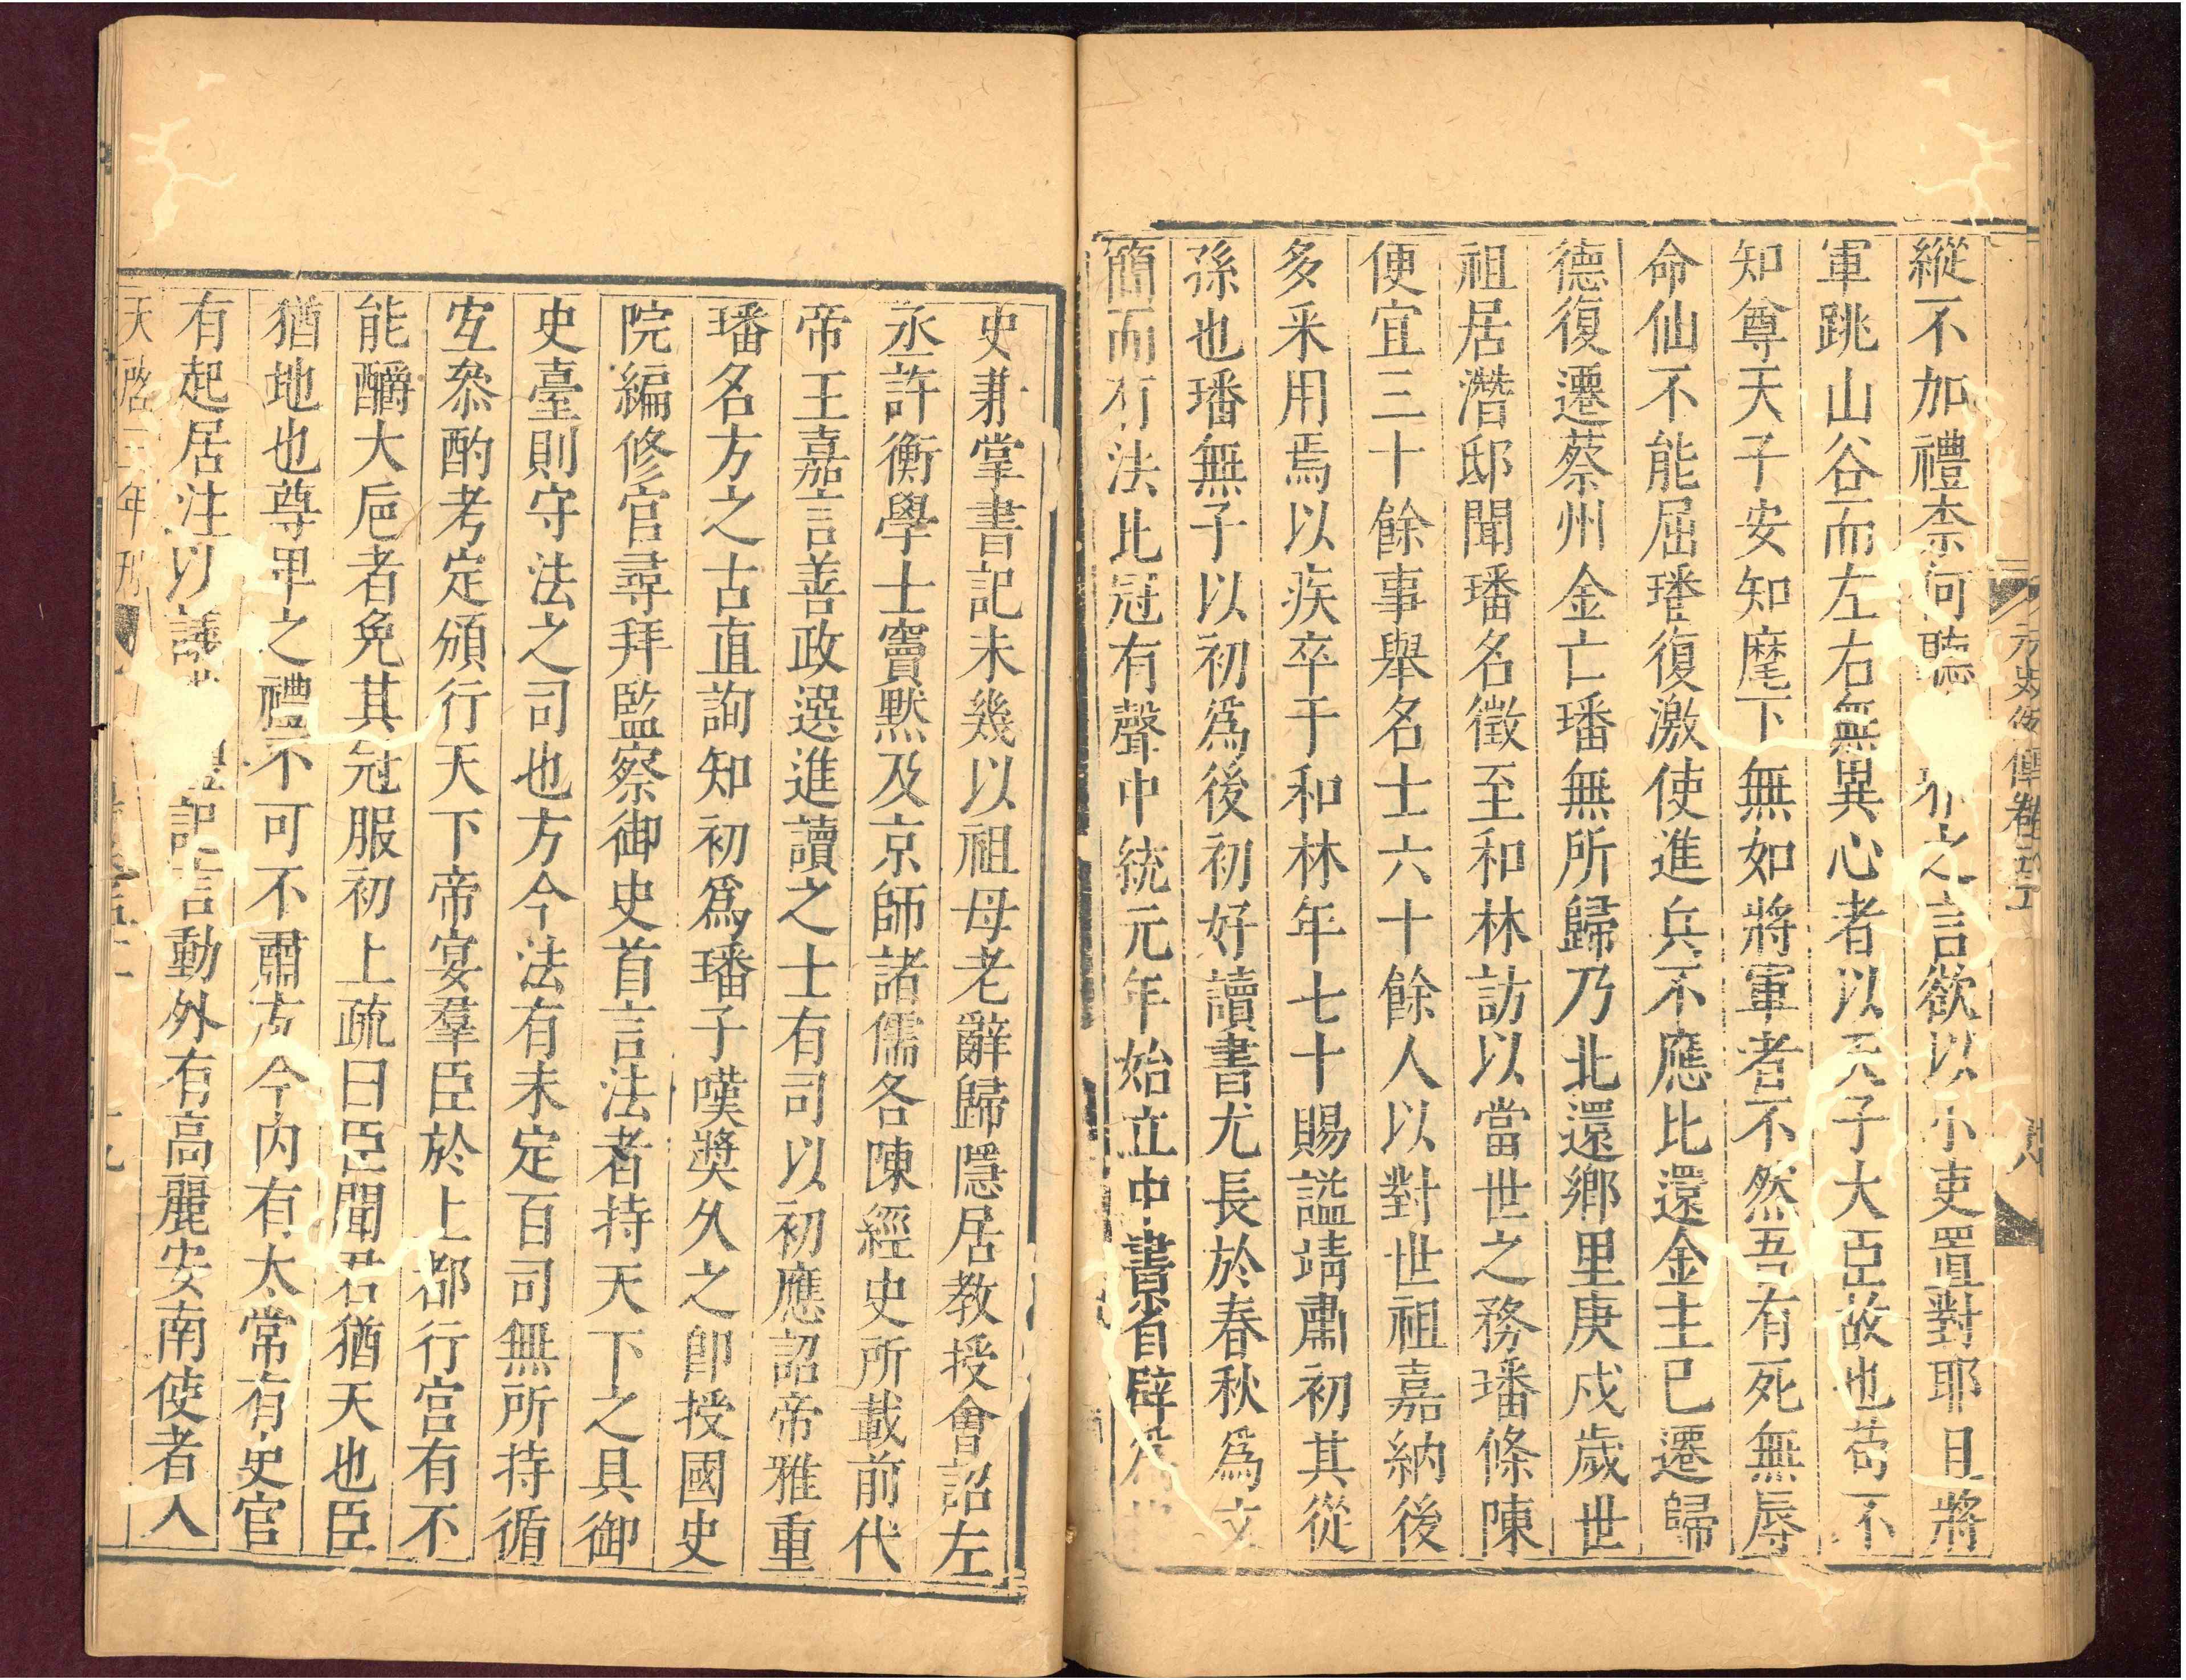 元史 傳卷
縱不加禮柰何聽 之言欲以小吏置對耶且將
軍跳山谷而左右無異心者以天子大臣故也苟不
知尊天子安知麾下無如將軍者不然吾有死無辱
命仙不能屈璠復激使進兵不應比還金主已遷歸
德復遷蔡州金亡璠無所歸乃北還鄉里庚戌歲世
祖居潛邸聞璠名徵至和林訪以當世之務璠條陳
便宜三十餘事舉名士六十餘人以對世祖嘉納後
多采用焉以疾卒于和林年七十賜謚靖肅初其從
孫也璠無子以初爲後初好讀書尤長於春秋爲文
簡而有法比冠有聲中統元年始立中書省辟爲
史兼掌書記未幾以祖母老辭歸隱居教授會詔左
丞許衡學士竇默及京師諸儒各陳經史所載前代
帝王嘉言善政選進讀之士有司以初應詔帝雅重
璠名方之古直詢知初爲璠子嘆獎久之卽授國史
院編修官尋拜監察御史首言法者持天下之具御
史臺則守法之司也方今法有未定百司無所持循
宐叅酌考定頒行天下帝宴羣臣於上都行宮有不
能釂大巵者免其冠服初上疏曰臣聞君猶天也臣
猶地也尊卑之禮不可不肅方今内有太常有史官
有起居注以議 禮記言動外有高麗安南使者入
天啓 年刊